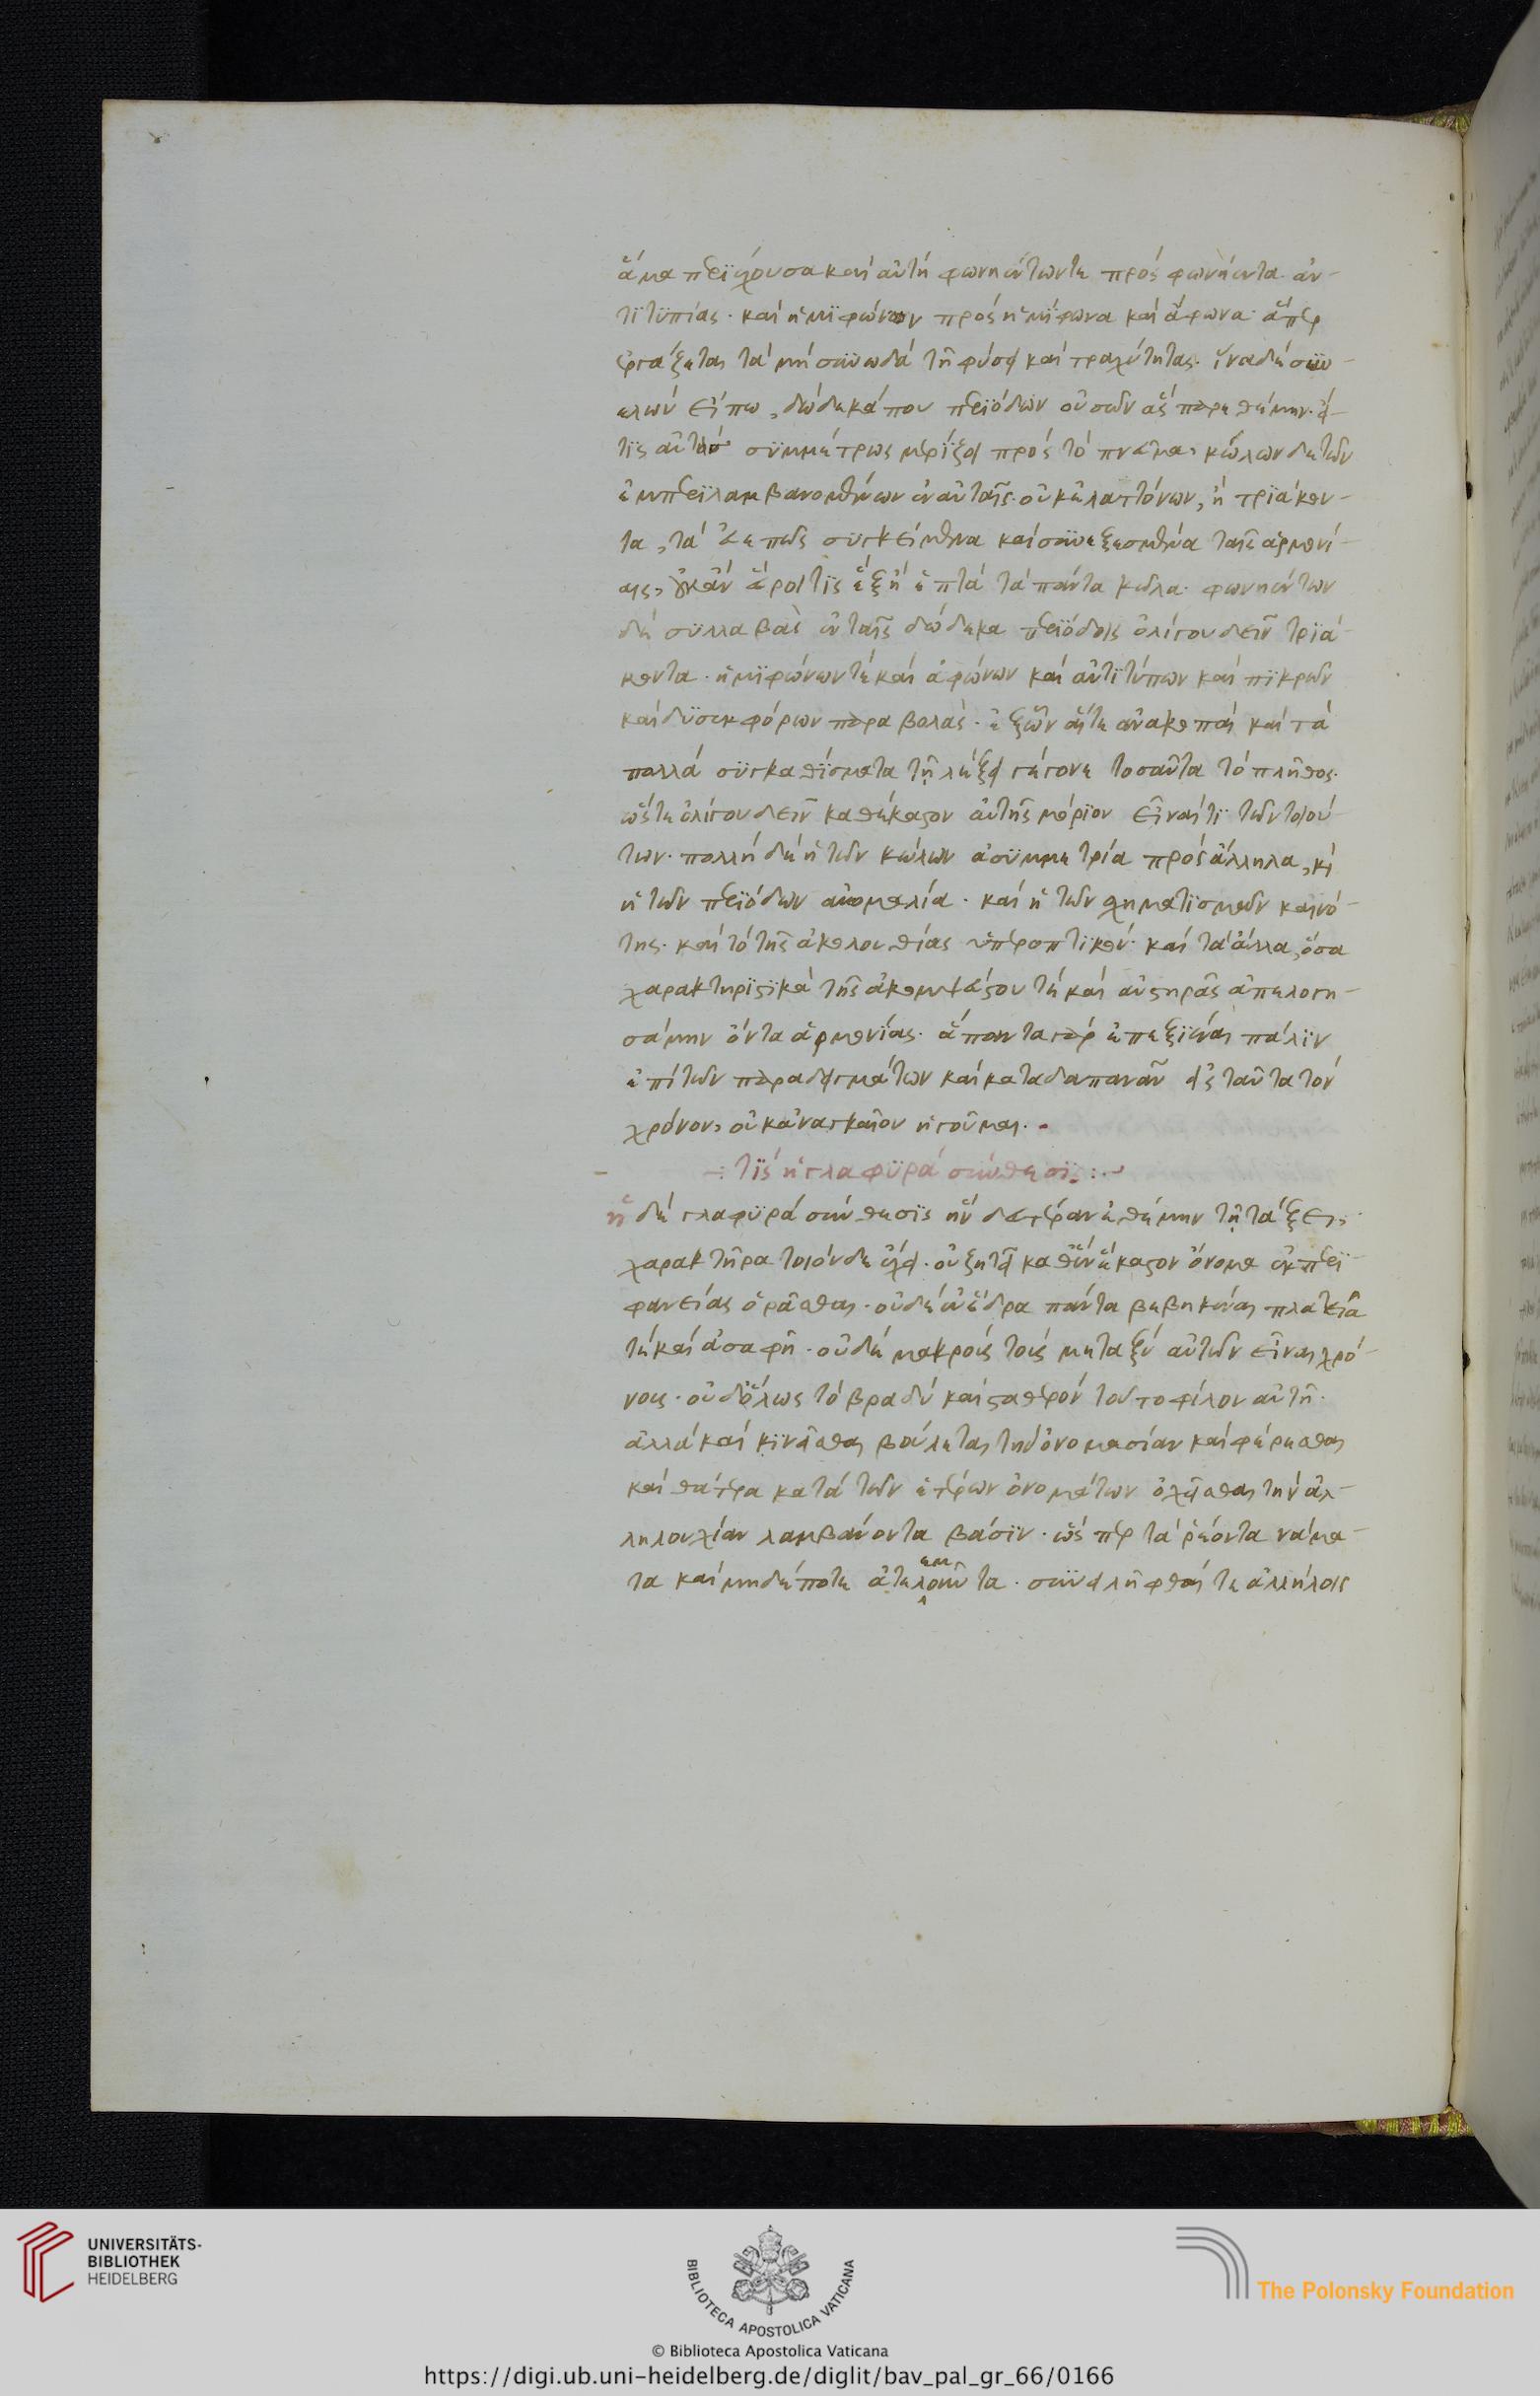 ἅμα περιέχουσα καὶ αὐτὴ φωνηέντων τε πρὸς φωνήεντα ἀν-
τιτυπίας· καὶ ἡμιφώνων πρὸς ἡμίφωνα καὶ ἄφωνα· ἅπερ
ἐργάζεται τὰ μὴ συνωδὰ τῇ φύσει καὶ τραχύτητας· ἵνα δὲ συν-
ελὼν εἴπω, δώδεκά που περιόδων οὐσῶν ἃς παρεθέμην· εἴ
τις αὐτὸ συμμέτρως μερίζει πρὸς τὸ πνεῦμα, κώλων δὲ τῶν
ἐμπεριλαμβανομένων ἐν αὐταῖς· οὐκ ἐλαττόνων, ἢ τριάκον-
τα, τὰ εὐεπῶς συγκείμενα καὶ συνεξεσμένα ταῖς ἁρμονί-
αις, οὐκ ἂν εὕροι τις ἓξ ἢ ἑπτὰ τὰ πάντα κῶλα· φωνηέντων
δὲ συλλαβὰς ἐν ταῖς δώδεκα περιόδοις ὀλίγου δεῖν τριά-
κοντα· ἡμιφώνων τὲ καὶ ἀφώνων καὶ ἀντιτύπων καὶ πικρῶν
καὶ δυσεκφόρων παραβολὰς· ἐξ ὧν αἵ τε ἀνακοπαὶ καὶ τὰ
πολλὰ συγκαθίσματα τῇ λέξει γέγονε τοσαῦτα τὸ πλῆθος·
ὥστε ὀλίγου δεῖν καθέκαστον αὐτῆς μόριον εἶναί τι τῶν τοιού-
των· πολλὴ δὲ ἡ τῶν κώλων ἀσυμμετρία πρὸς ἄλληλα, καὶ
ἡ τῶν περιόδων ἀνωμαλία· καὶ ἡ τῶν σχηματισμῶν καινό-
της· καὶ τὸ τῆς ἀκολουθίας ὑπεροπτικὸν· καὶ τὰ ἄλλα, ὅσα
χαρακτηριστικὰ τῆς ἀκομψεύστου τὲ καὶ αὐστηρᾶς ἀπελογη-
σάμην ὄντα ἁρμονίας· ἅπαντα γὰρ ἐπεξιέναι πάλιν
ἐπὶ τῶν παραδειγμάτων καὶ καταδαπανᾶν εἰς ταῦτα τὸν
χρόνον, οὐκ ἀναγκαῖον ἡγοῦμαι·
τίς ἡ γλαφυρὰ σύνθεσις:
ἡ δὲ γλαφυρὰ σύνθεσις ἣν δευτέραν ἐθέμην τῇ τάξει,
χαρακτῆρα τοιόνδε ἔχει· οὐ ζητεῖ καθ᾽ ἓν ἕκαστον ὄνομα ἐκ περι
φανείας ὁρᾶσθαι· οὐδὲ ἐν ἕδρα πάντα βεβηκέναι πλατεία
τὲ καὶ ἀσαφῆ· οὐδὲ μακροὺς τοὺς μεταξὺ αὐτῶν εἶναι χρό-
νους· οὐδ᾽ ὅλως τὸ βραδὺ καὶ σταθερὸν τοῦτο φίλον αὐτῇ·
ἀλλὰ καὶ κινεῖσθαι βούλεται τὴν ὀνομασίαν καὶ φέρεσθαι
καὶ θάτερα κατὰ τῶν ἑτέρων ὀνομάτων ὀχεῖσθαι τὴν ἀλ-
ληλουχίαν λαμβάνοντα βάσιν· ὥσπερ τὰ ῥέοντα νάμα-
τα καὶ μηδέποτε ἀτρεμοῦντα· συνειλῆφθαί τε ἀλλήλοις
UNIVERSITÄTS-
BIBLIOTHEK
HEIDELBERG
BIBLIOTECA APOSTOLICA VATICANA
The Polonsky Foundation
© Biblioteca Apostolica Vaticana
https://digi.ub.uni-heidelberg.de/diglit/bav_pal_gr_66/0166